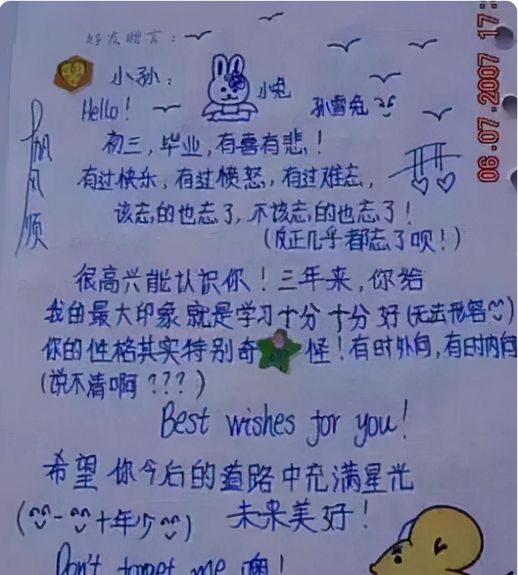 好友赠言：
小孙：
小兔
Hello！
孙雪兔
一帆风顺
初三，毕业，有喜有悲！
有过快乐，有过愤怒，有过难忘，
该忘的也忘了，不该忘的也忘了！
（反正几乎都忘了呗！）
很高兴能认识你！三年来，你给
我的最大印象就是学习十分十分好（无法形容）
你的性格其实特别奇怪！有时外向，有时内向
（说不清啊？？？）
Best wishes for you！
希望你今后的道路中充满星光
未来美好！
Don't forget me 噢！
06.07.2007 17: